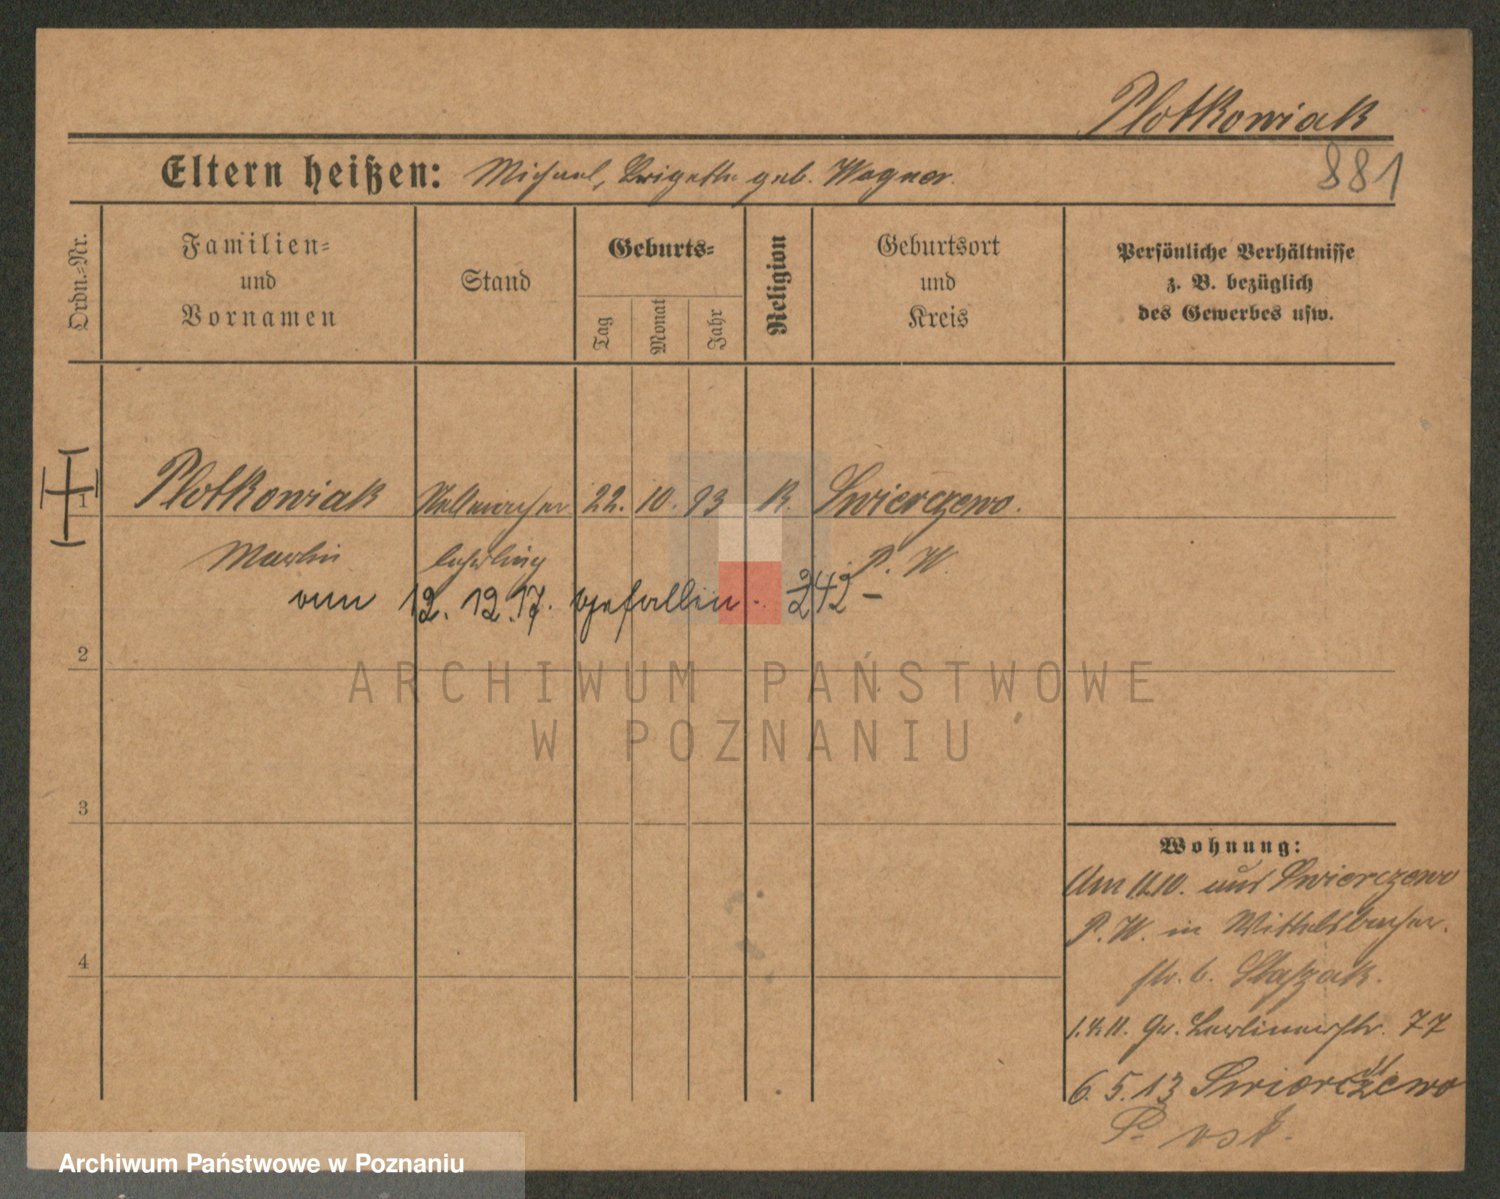 Plotkowiak
881
Eltern heißen: Michael, Brigetta geb. Wagner.
Ordn.=Nr.
Familien=
und
Vornamen
Stand
Geburts=
Tag
Monat
Jahr
Religion
Geburtsort
und
Kreis
Persönliche Verhältnisse
z. B. bezüglich
des Gewerbes usw.
1
Plotkowiak Stellmacher 22. 10. 93 K. Swierczewo.
Martin lehrling P. W.
am 12. 12. 17. gefallen. 242 –
2
ARCHIWUM PAŃSTWOWE
W POZNANIU
3
4
Wohnung:
Am 11.10. aus Swierczewo
P. W. in Wittelsbacher.
str. 6.
Gr. Berlinerstr. 77
6. 5. 13 Swierczewo
P. ost.
Archiwum Państwowe w Poznaniu